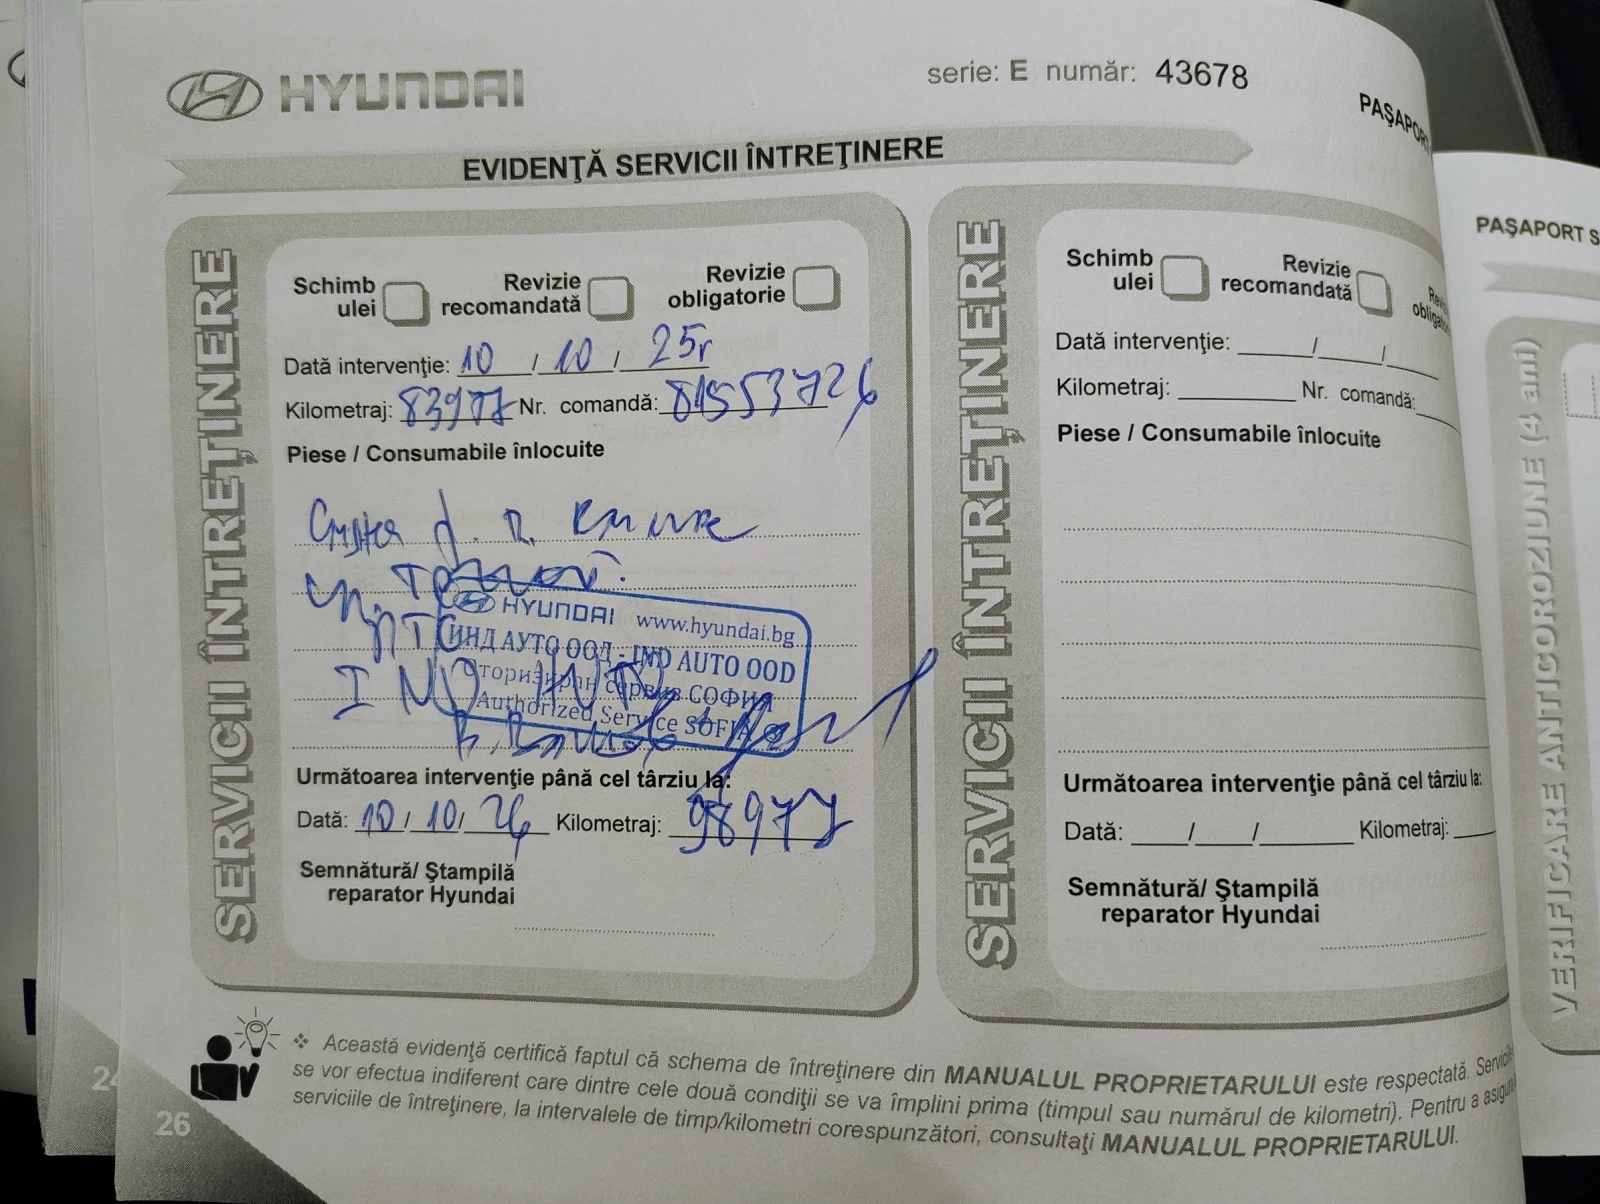 HYUNDAI
serie: E număr: 43678
PAŞAPOR
EVIDENŢĂ SERVICII ÎNTREŢINERE
SERVICII ÎNTREŢINERE
Schimb ulei
Revizie recomandată
Revizie obligatorie
Dată intervenţie: 10 / 10 / 25г
Kilometraj: 83977 Nr. comandă: 81553726
Piese / Consumabile înlocuite
HYUNDAI www.hyundai.bg
ИНД АУТО ООД - IND AUTO OOD
оторизиран сервиз СОФИЯ
Authorized Service SOFIA
Următoarea intervenţie până cel târziu la:
Dată: 10 / 10 / 26 Kilometraj: 98977
Semnătură/ Ştampilă
reparator Hyundai
SERVICII ÎNTREŢINERE
Schimb ulei
Revizie recomandată
Dată intervenţie: / /
Kilometraj: Nr. comandă:
Piese / Consumabile înlocuite
Următoarea intervenţie până cel târziu la:
Dată: / / Kilometraj:
Semnătură/ Ştampilă
reparator Hyundai
PAŞAPORT S
VERIFICARE ANTICOROZIUNE (4 ani)
❖ Această evidenţă certifică faptul că schema de întreţinere din MANUALUL PROPRIETARULUI este respectată.
se vor efectua indiferent care dintre cele două condiţii se va împlini prima (timpul sau numărul de kilometri). Pentru a
serviciile de întreţinere, la intervalele de timp/kilometri corespunzători, consultaţi MANUALUL PROPRIETARULUI.
24
26